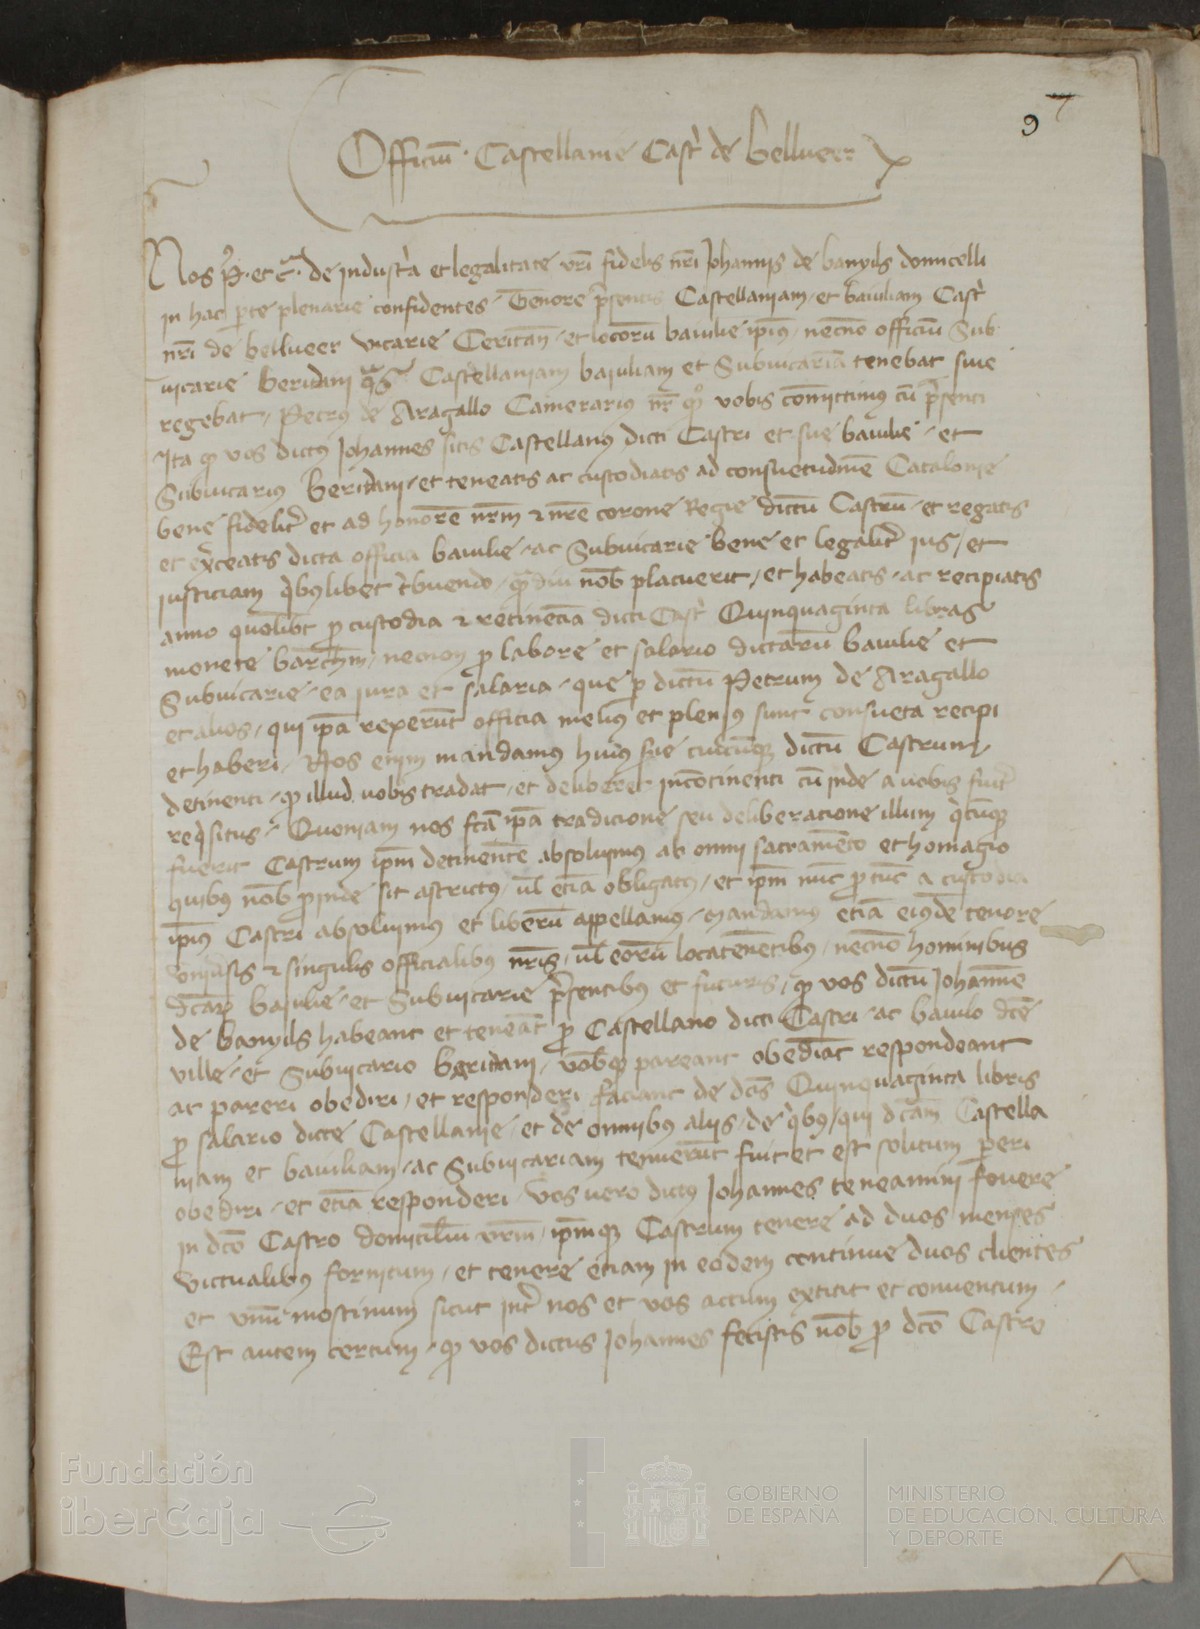 9 7
Officiu͞ · Castellanie Castˀ de bellueer
Nos P̉ · et c̃ · de industˀa et legalitate vr̃i fidelis nr̃i Johannis de banyls domicelli
in hac ꝑte plenarie confidentes · Tenore p̃sentis Castellaniam · et baiuliam Castˀ
nr̃i de bellueer vicarie Ceritan̄ · et locoru͞ baiulie ip̃ius · necno͞ officiu͞ Sub
uicarie beridani q̃s Castellaniam baiuliam et Subuicaria͞ tenebat siue
regebat · Petrus de Aragallo Camerarius nr̃ qͦ vobis com͞ittimus cu͞ p̃senti
Ita ꝙ vos dictus Johannes sitis Castellanus dicti Castri et sue baiulie · et
Subuicarius beridani · et teneatis ac custodiatis ad consuetudine͞ Catalonie
bene fideliṫ et ad honore͞ nr̃m ⁊ nr̃e corone Regie dictu͞ Castru͞ · et regatis
et ex̉ceatis dicta officia baiulie · ac Subuicarie bene et legaliṫ ius / et
iusticiam qˀbuslibet tˀbuendo · qͣ͞diu nob̃ placuerit / et habeatis · ac recipiatis
anno quolibt̃ ꝓ custodia ⁊ retine͞cia dicti Castˀ Quinquaginta libras
monete barch̃m / necnon ꝓ labore et salario dictaru͞ baiulie et
Subuicarie · ea iura et salaria · que ꝑ dictu͞ Petrum de Aragallo
et alios / qui ip̃a rexeru͞t officia melius et plenius sunt consueta recipi
et haberi / Nos enim mandamus huius sie cuicu͞qꝫ dictu͞ Castrum
detinenti · ꝙ illud uobis tradat / et deliberet inco͞tinenti cu͞ inde a uobis fuiṫ
reqˀsitus · Quoniam nos fc̃a ip̃a tradicione seu deliberacione illum qˀcu͞qꝫ
fuerit Castrum ip̃m detinente͞ absoluimus ab omni sacrame͞to et homagio
quibus nob̃ ꝓinde sit astrictus / ul̃ etia͞ obligatus / et ip̃m nu͞c ꝓ tu͞c a custodia
ip̃ius Castri absoluimus et liberu͞ appellamus · Mandamus etia͞ eiusde͞ tenore
vniṽsis ⁊ singulis officialibus nr̃is / ul̃ eoru͞ locatene͞tibus / necno͞ hominibus
dc̃aꝝ baiulie · et Subuicarie p̃sentibus et futuris / ꝙ vos dictu͞ Johanne͞
de banyls habeant et tenea͞t ꝓ Castellano dicti Castri · ac baiulo dc̃e
ville · et Subuicario beridani / vob̃qꝫ pareant obedia͞t respondeant
ac pareri obediri / et responderi faciant de dc̃is Quinquaginta libris
ꝓ salario dicte Castellanie · et de omnibus aliis · de qˀbus / qui dc̃am Castella
niam et baiuliam · ac Subuicariam tenueru͞t fuit et est solitum pareri
obediri · et etia͞ responderi · Vos uero dictus Johannes teneamini fouere
in dc̃o Castro domiciliu͞ vr̃m / ip̃mqꝫ Castrum tenere ad duos menses
victualibus fornitum / et tenere etiam in eodem continue duos clientes
et vnu͞ mostinum sicut inṫ nos et vos actum extitit et conuentum ·
Est autem certum · ꝙ vos dictus Johannes fecistis nob̃ ꝓ dc̃o Castro
Fundación
iberCaja
GOBIERNO
DE ESPAÑA
MINISTERIO
DE EDUCACIÓN, CULTURA
Y DEPORTE